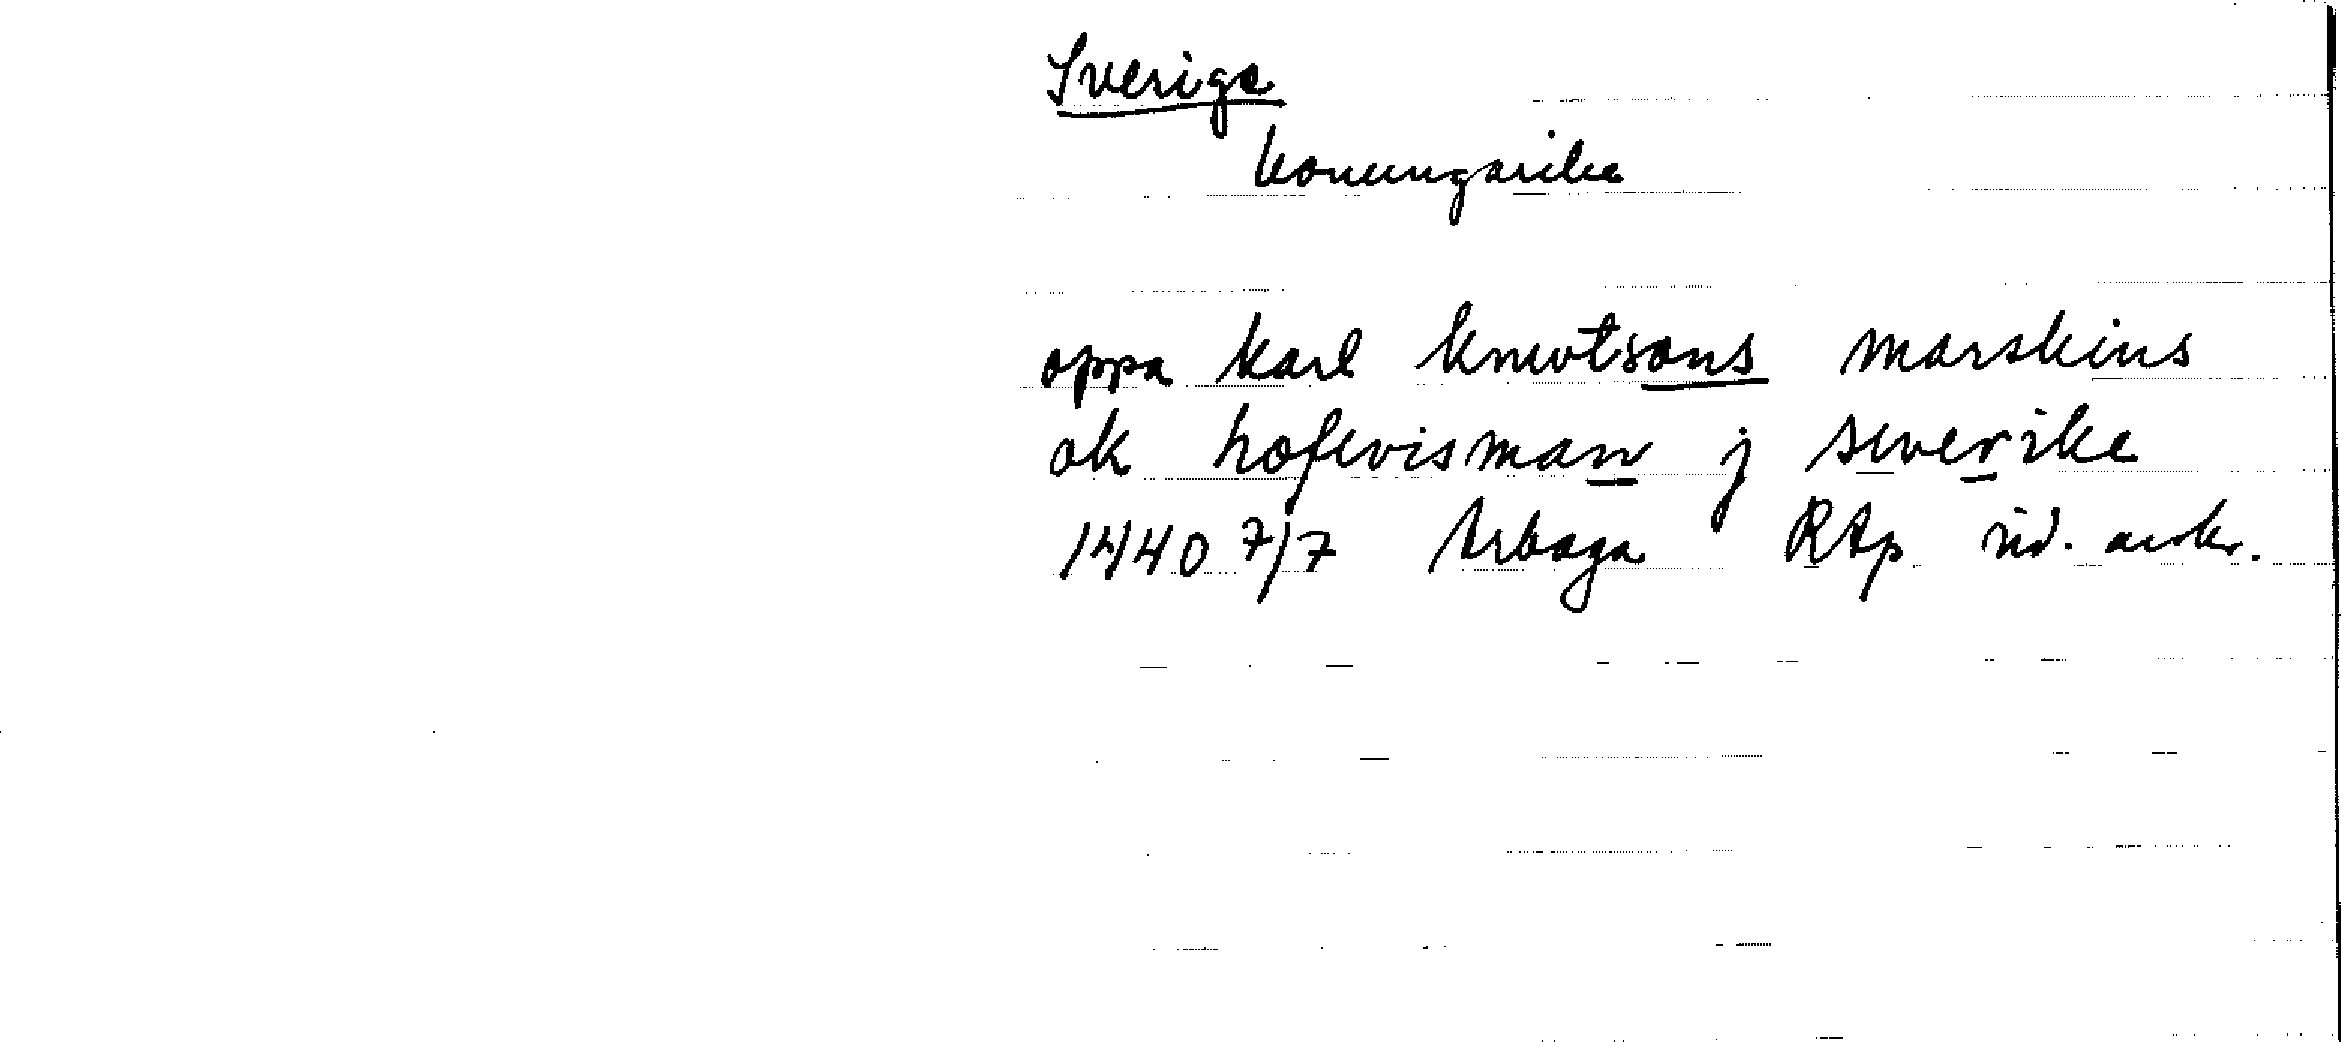 Sverige
konungarike
oppa karl knwtsons marskins
ok hofwisman j swerike
1440 7/7 Arboga RAp